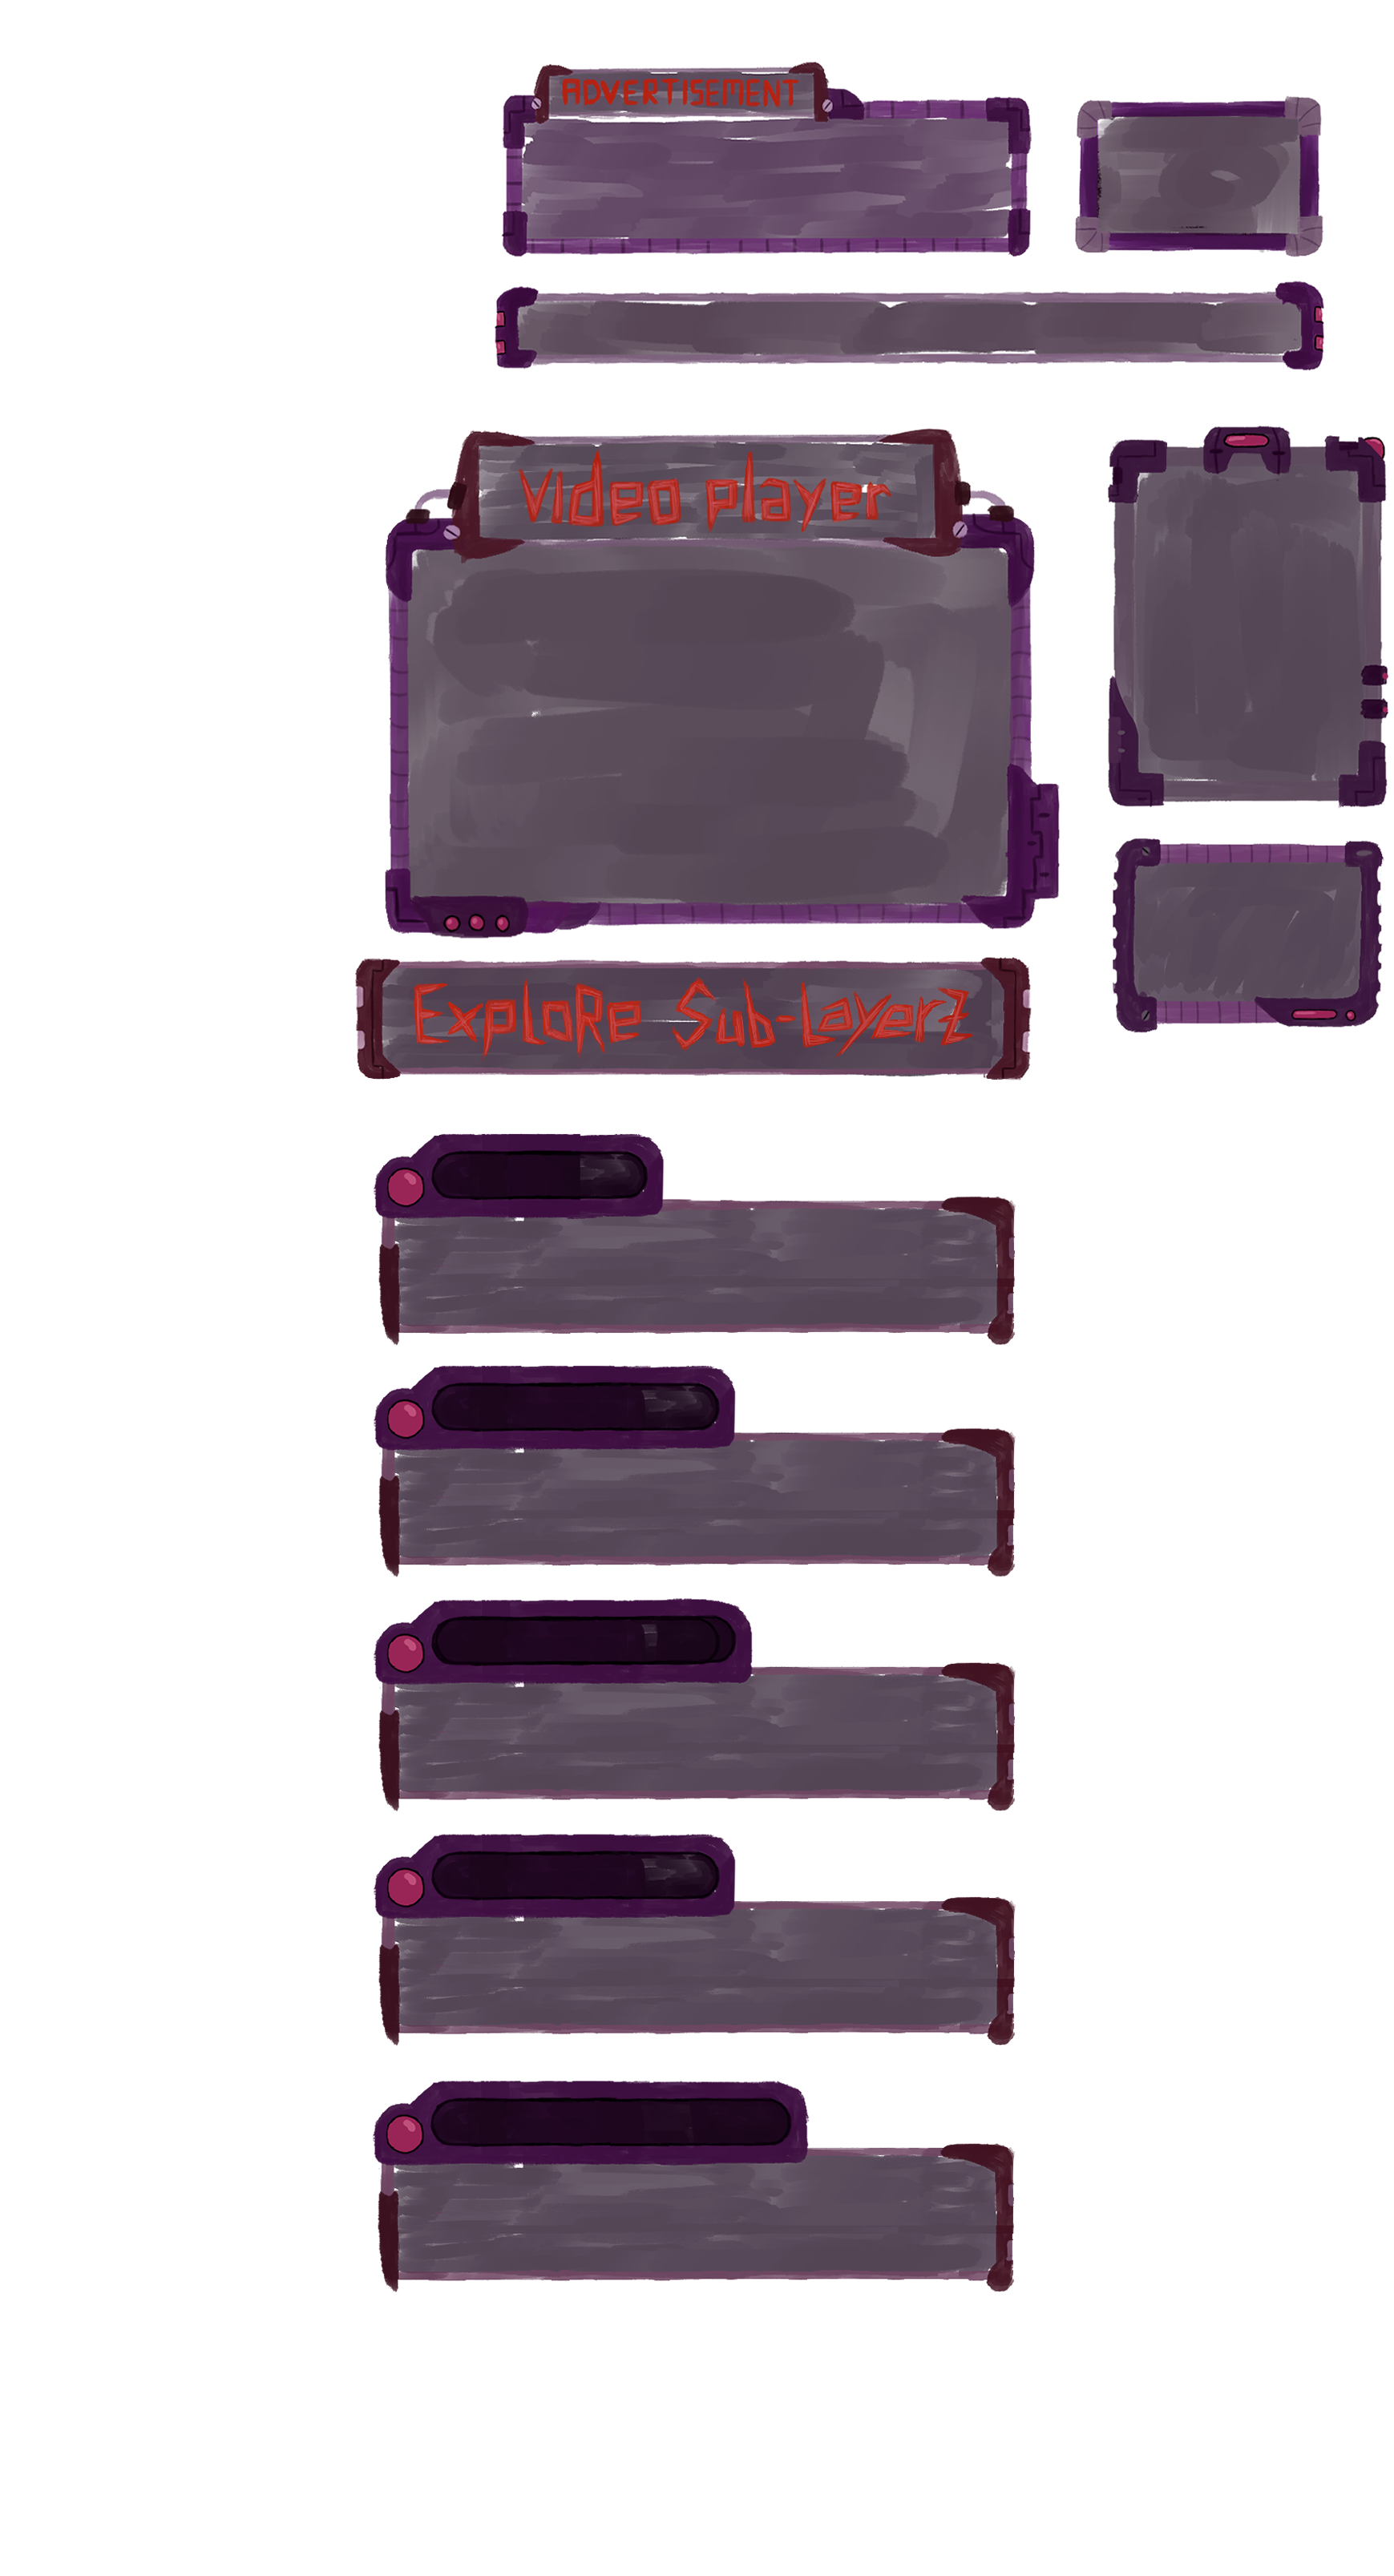 ADVERTISEMENT
video player
ExploRe Sub-LayerZ